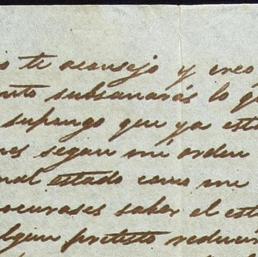 o te aconsejo y creo
ento subsanarás lo q
supongo que ya est
nes segun me orden
mal estado como me
rocurases saber el est
lgun pretesto reducir